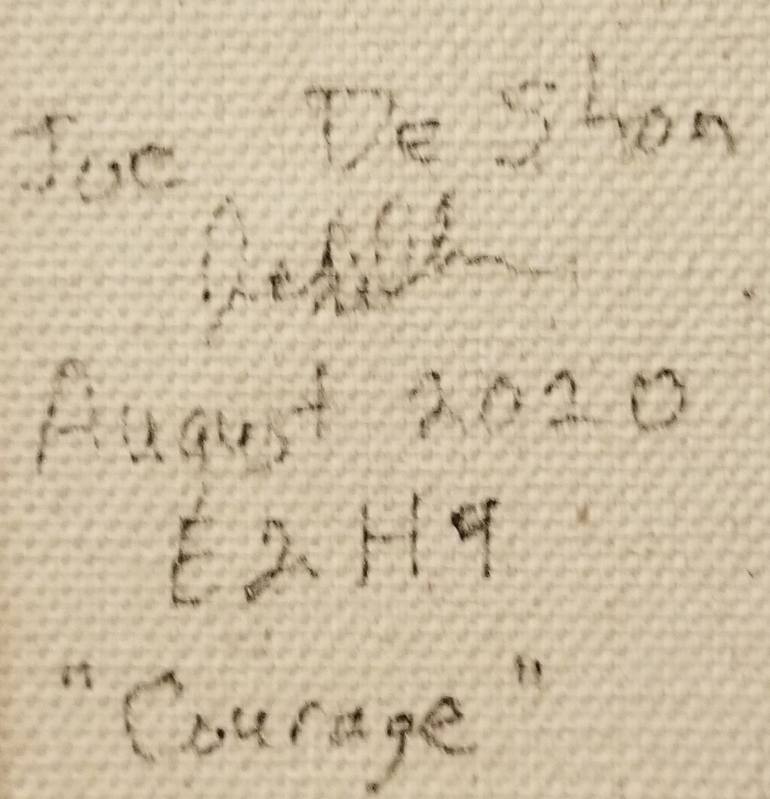 Joe De Shon
August 2020
E2H9
"Courage"